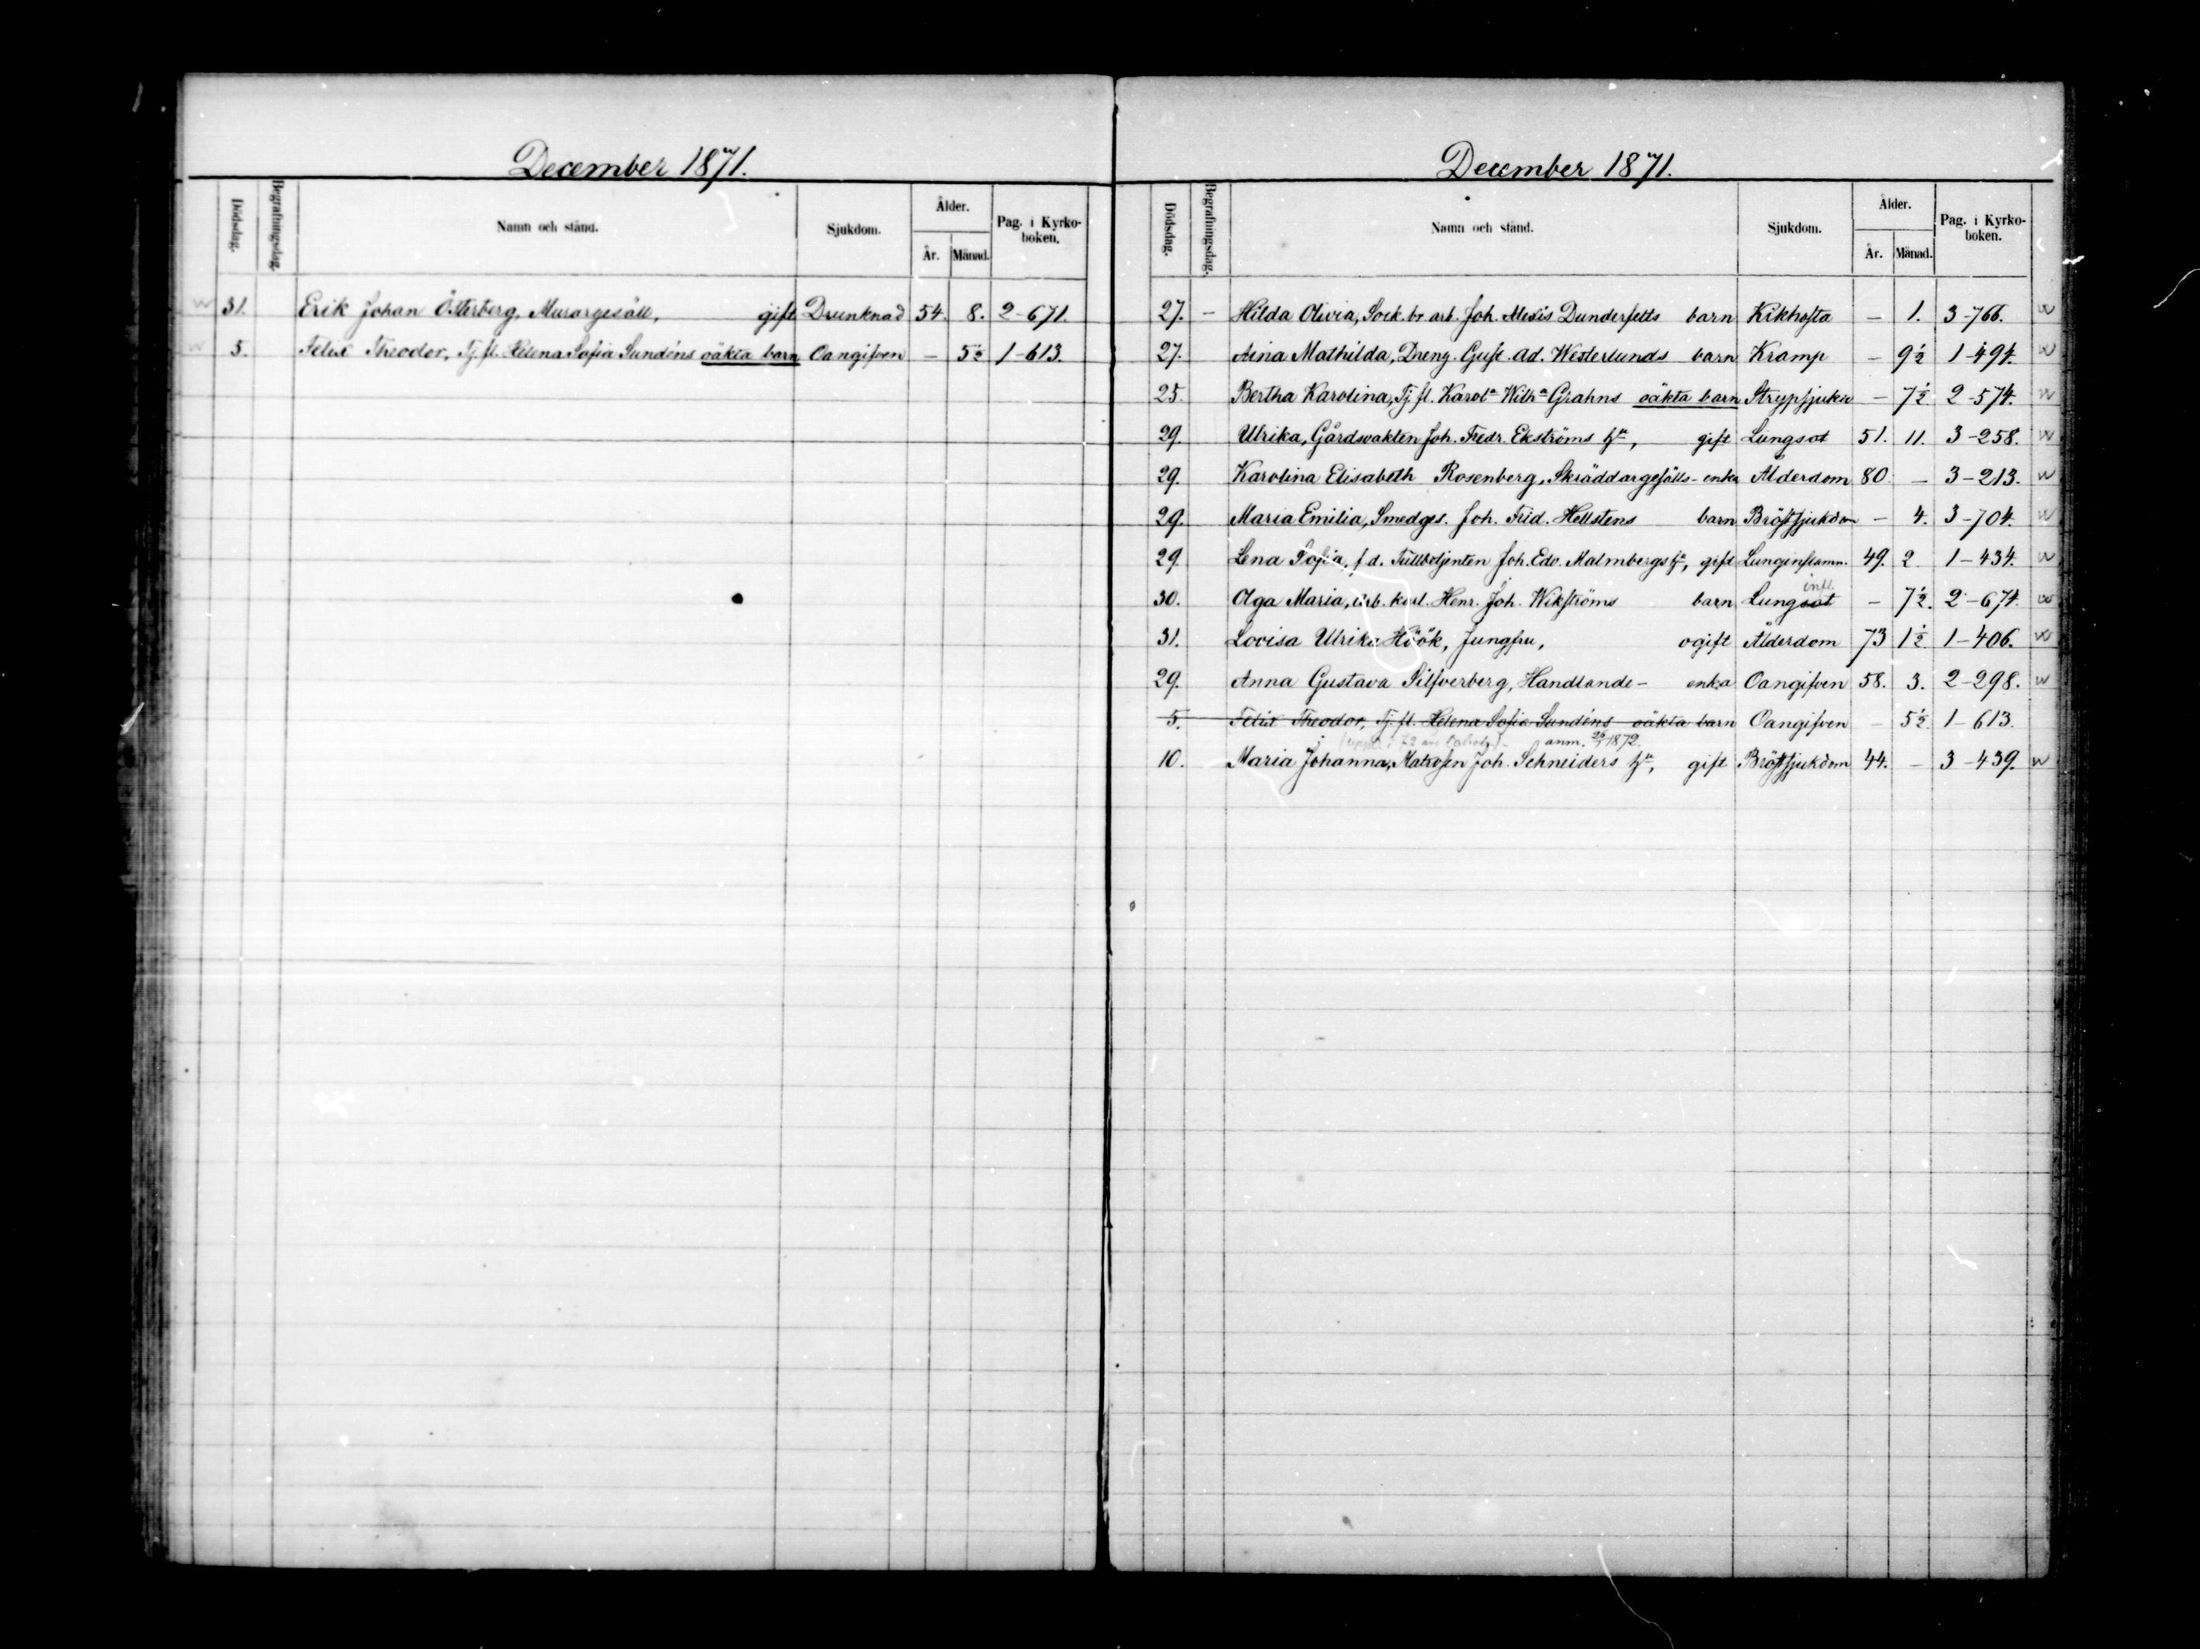 December 1871.
Dödsdag. Begrafningsdag. Namn och stånd. Sjukdom. Ålder. År. Månad. Pag. i Kyrko-boken.
31. Erik Johan Österberg, Murargesäll, gift Drunknad 54. 8. 2-671.
5. Felix Theodor, Tj. fl. Helena Sofia Sundéns oäkta barn Oangifven — 5½ 1-613.
December 1871.
Dödsdag. Begrafningsdag. Namn och stånd. Sjukdom. Ålder. År. Månad. Pag. i Kyrko-boken.
27. — Hilda Olivia, Sock. br. arb. Joh. Alexis Dunderfelts barn Kikhosta — 1. 3-766.
27. Aina Mathilda, Dreng. Gust. Ad. Westerlunds barn Kramp — 9½ 1-494.
25. Bertha Karolina, Tj. fl. Karola Wilha Grahns oäkta barn Strypsjuka — 7½ 2-574.
29. Ulrika, Gårdsvakten Joh. Fredr. Ekströms hu, gift Lungsot 51. 11. 3-258.
29. Karolina Elisabeth Rosenberg, Skräddargesälls-enka Ålderdom 80. — 3-213.
29. Maria Emilia, Smedges. Joh. Frid. Hellstens barn Bröstsjukdom — 4. 3-704.
29. Lena Sofia, f d. Tullbetjenten Joh. Edv. Malmbergs hu, gift Lunginflamn. 49. 2 1-434.
30. Olga Maria, Arb. karl. Henr. Joh. Wikströms barn Lungsot infl. — 7½. 2-674.
31. Lovisa Ulrika Höök, Jungfru, ogift Ålderdom 73 1½ 1-406.
29. Anna Gustava Silfverberg, Handlande- enka Oangifven 58. 3. 2-298.
5. Felix Theodor, Tj. fl. Helena Sofia Sundéns oäkta barn Oangifven — 5½ 1-613.
anm. 1872.
10. Maria Johanna, Matrosen Joh. Schneiders hu, gift Bröstsjukdom 44. — 3-439.